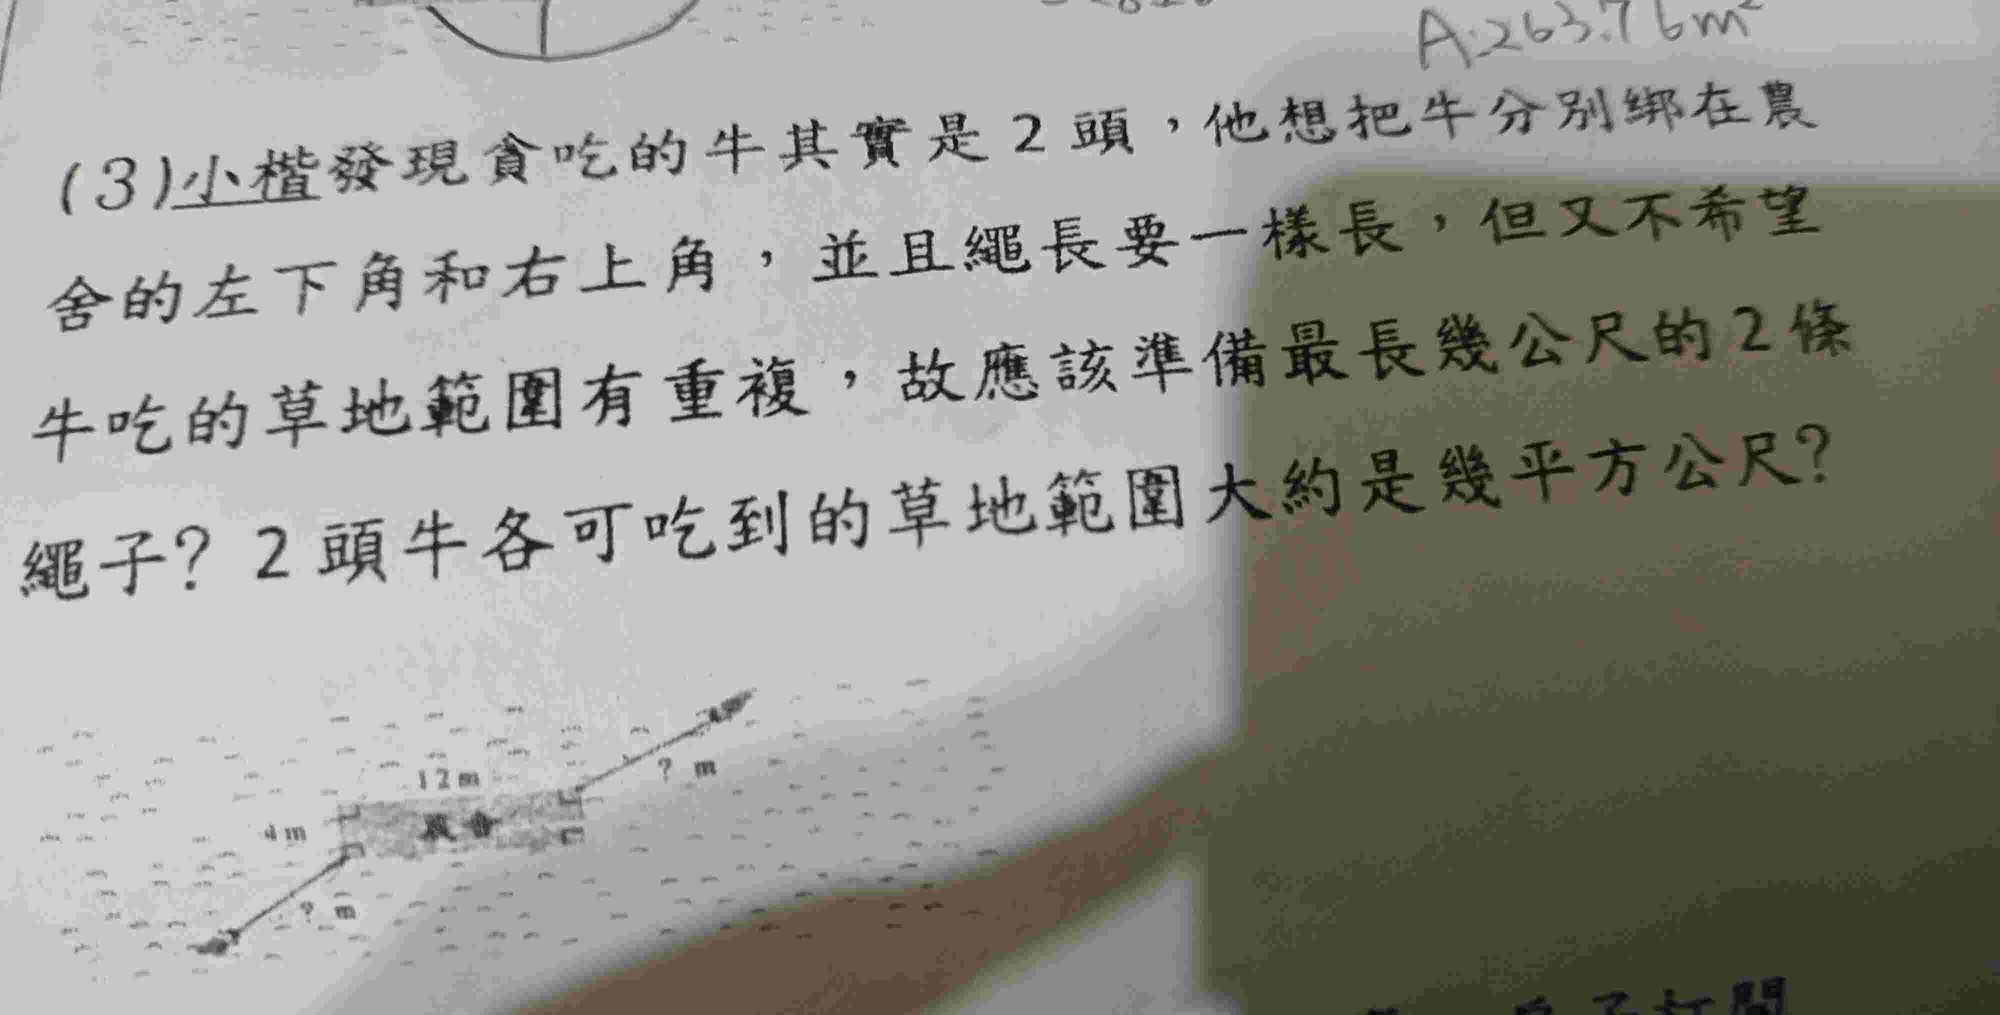 A:263.76m²
(3)小楷發現貪吃的牛其實是2頭，他想把牛分別綁在農
舍的左下角和右上角，並且繩長要一樣長，但又不希望
牛吃的草地範圍有重複，故應該準備最長幾公尺的2條
繩子？2頭牛各可吃到的草地範圍大約是幾平方公尺？
? m
12m
4m
農舍
? m